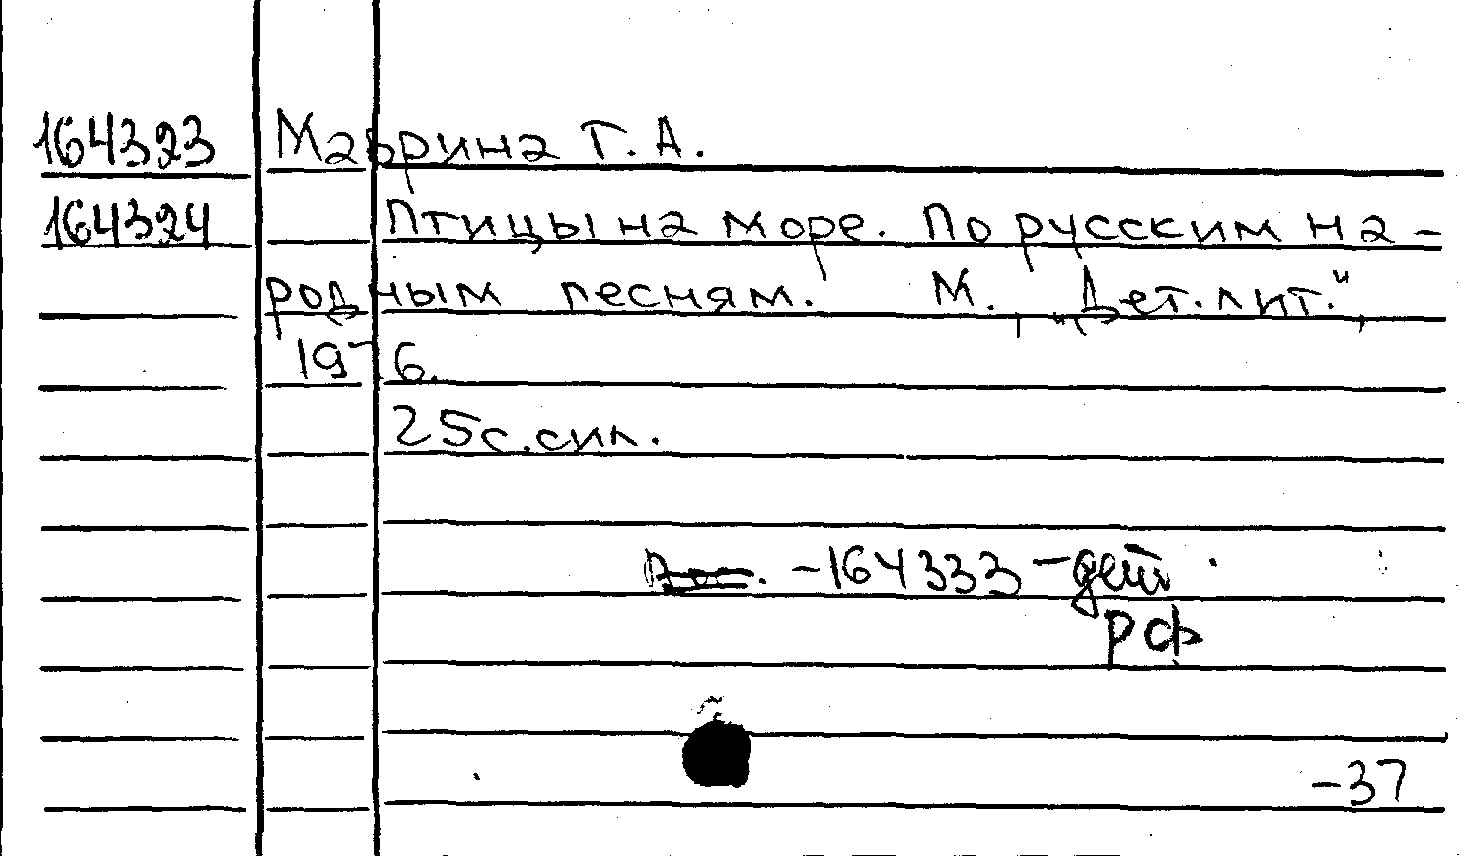 164323 Маврина Т. А.
164324 Птицы на море. По русским на-
родным песням. М., „Дет. лит.",
1976.
25 с. с ил.
-164333 - дет
РФ
-37